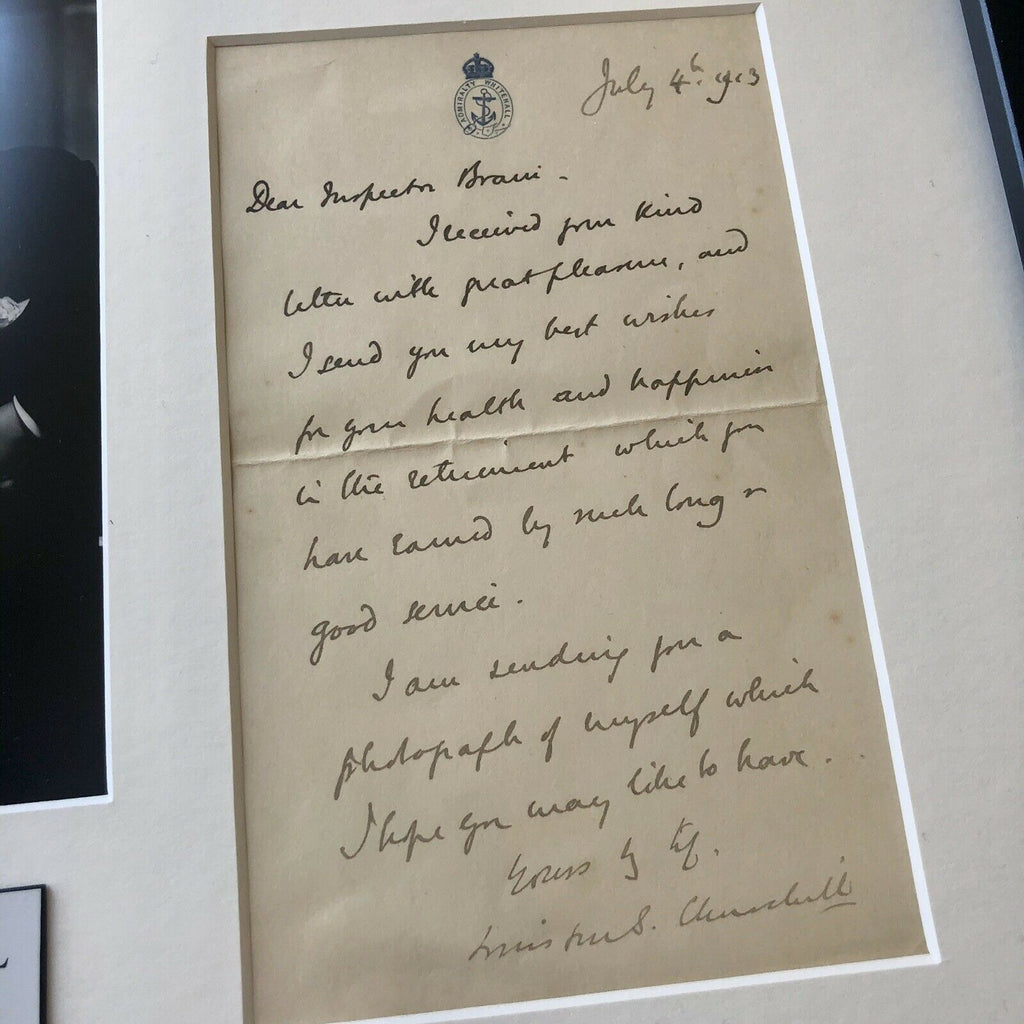 ADMIRALTY WHITEHALL
July 4th. 1913
Dear Inspector Brain -
I received your kind
letter with great pleasure, and
I send you my best wishes
for your health and happiness
in the retirement which you
have earned by such long &
good service.
I am sending you a
photograph of myself which
I hope you may like to have.
Yours
Winston S. Churchill